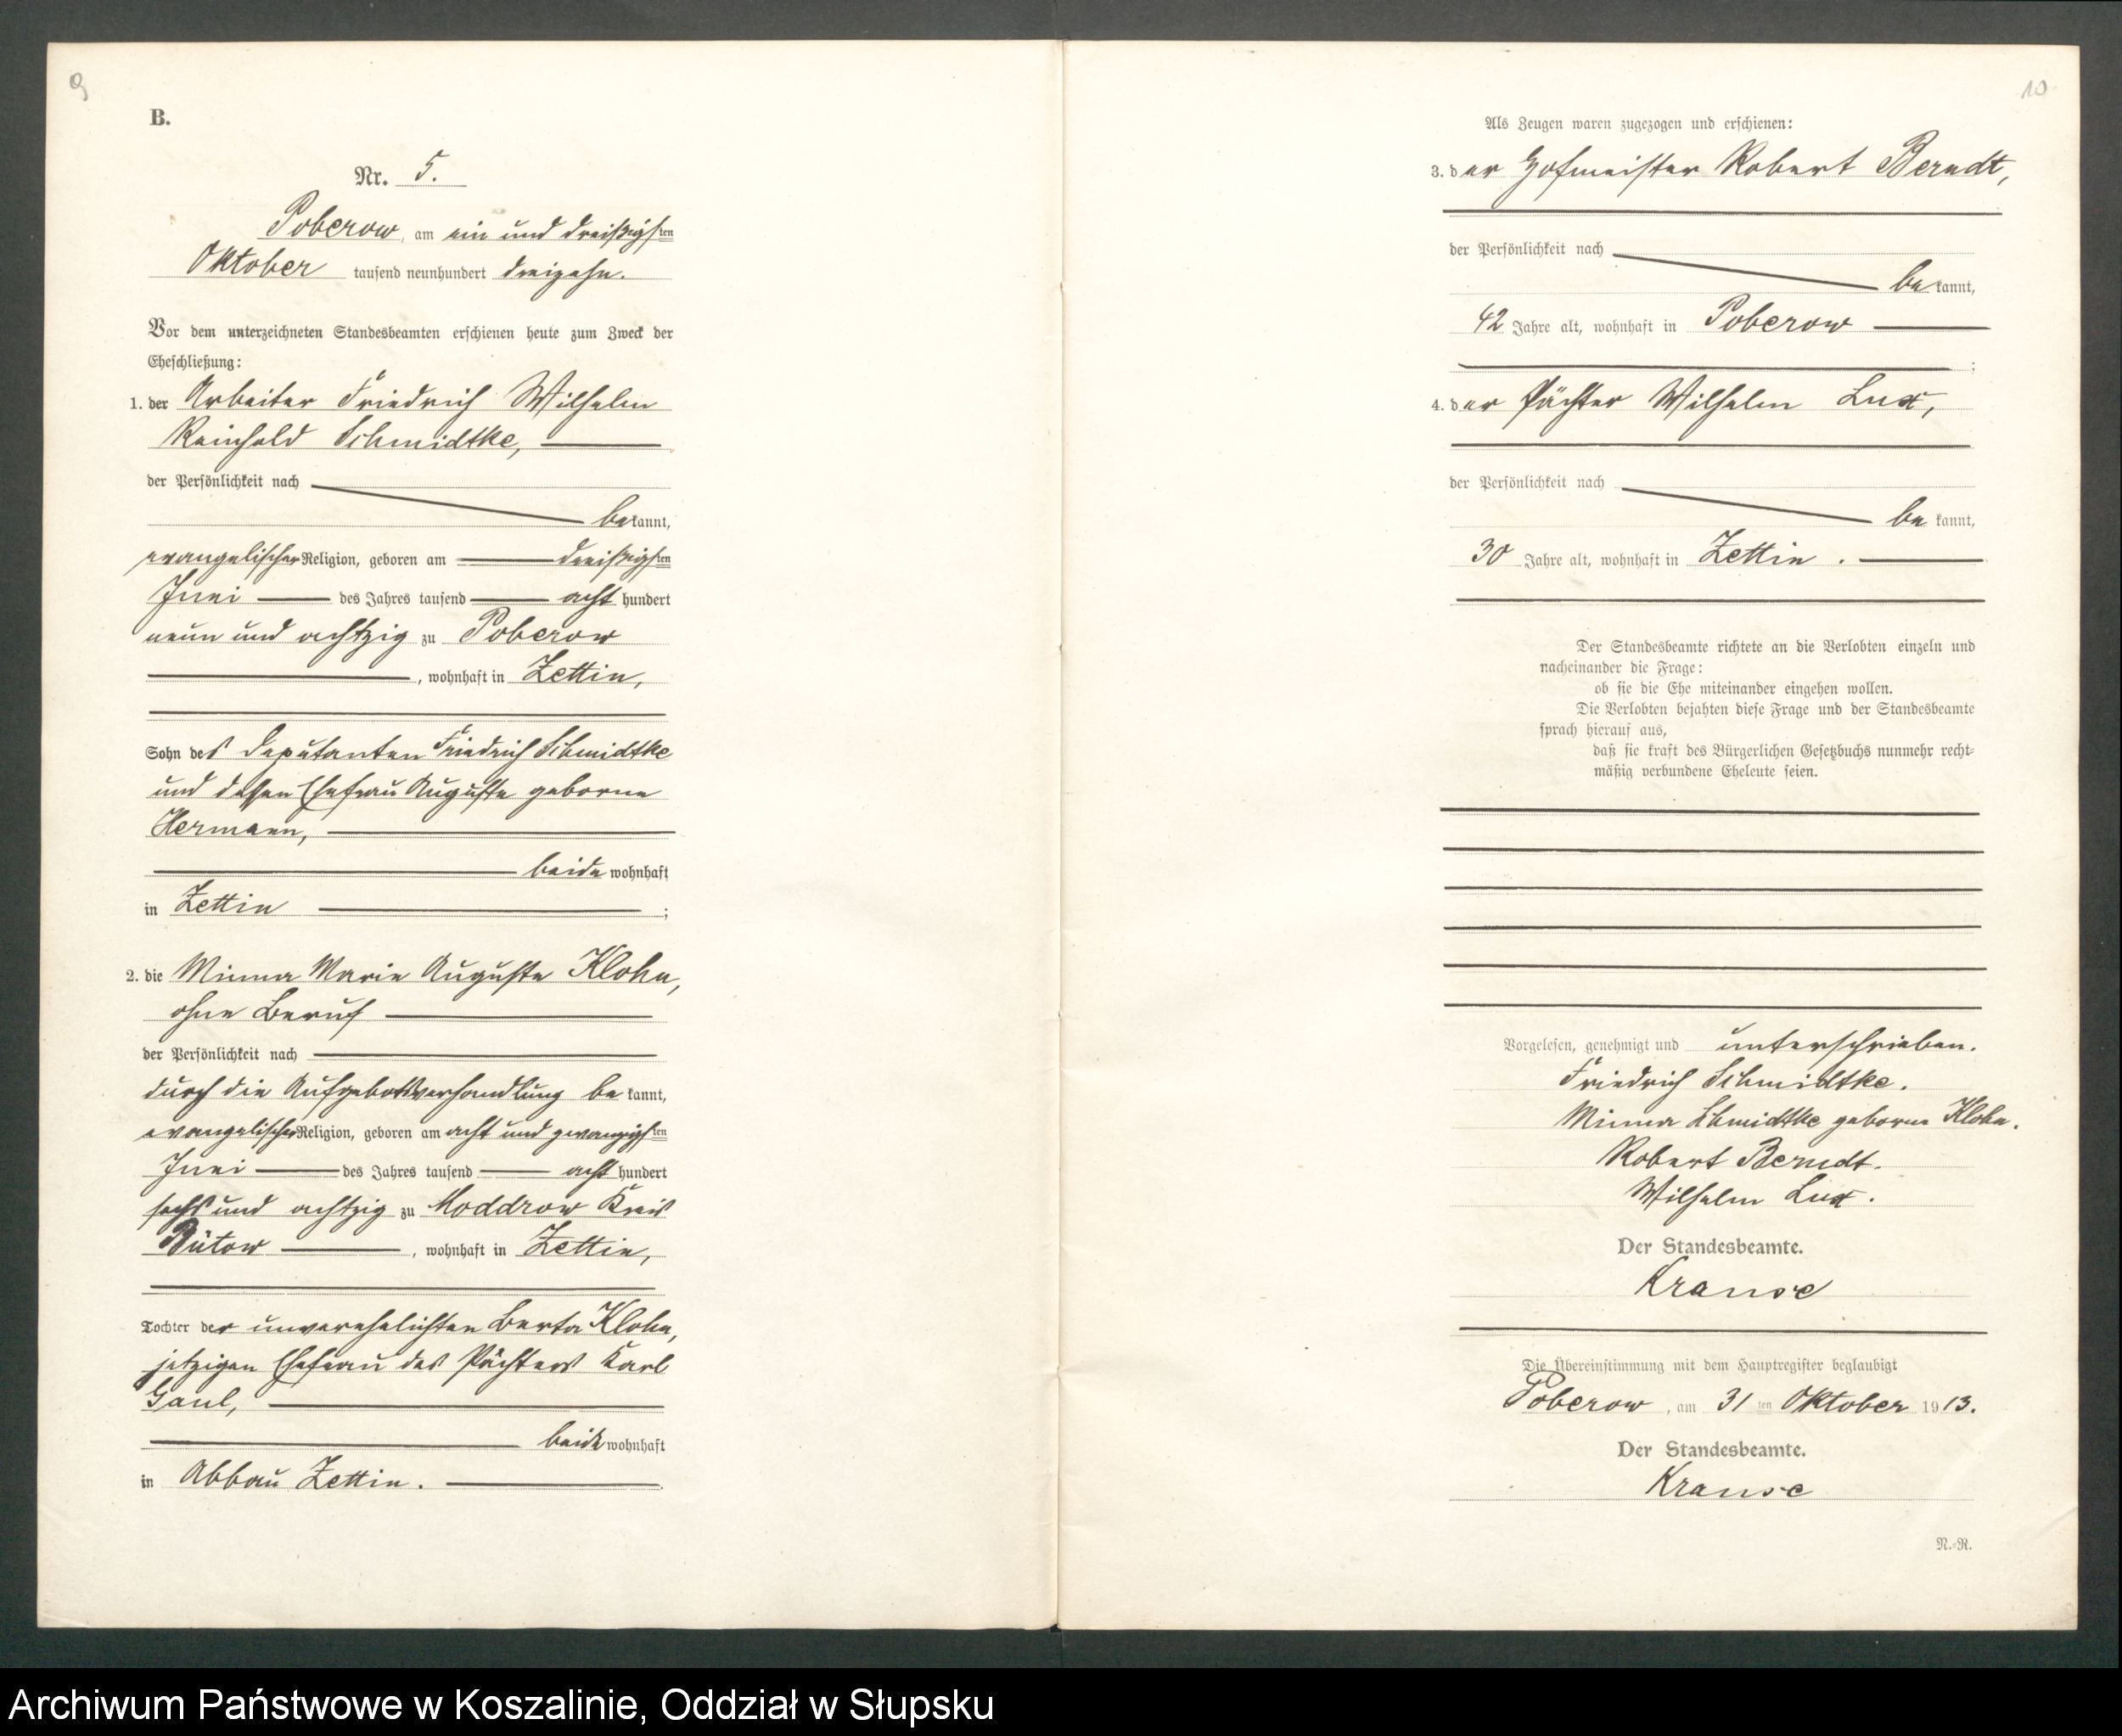 9
B.
Nr. 5.
Poberow, am ein und dreißigsten
Oktober tausend neunhundert dreizehn.
Vor dem unterzeichneten Standesbeamten erschienen heute zum Zweck der
Eheschließung:
1. der Arbeiter Friedrich Wilhelm
Reinhold Schmidtke,
der Persönlichkeit nach
bekannt,
evangelischer Religion, geboren am dreißigsten
Juni des Jahres tausend acht hundert
neun und achtzig zu Poberow
, wohnhaft in Zettin,
Sohn des Deputanten Friedrich Schmidtke
und dessen Ehefrau Auguste geborne
Hermann,
beide wohnhaft
in Zettin ;
2. die Minna Marie Auguste Klohn,
ohne Beruf
der Persönlichkeit nach
durch die Aufgebotsverhandlung be kannt,
evangelischer Religion, geboren am acht und zwanzigsten
Juni des Jahres tausend acht hundert
sechs und achtzig zu Moddrow Kreis
Bütow , wohnhaft in Zettin,
Tochter der unverehelichten Berta Klohn,
jetzigen Ehefrau des Pächters Karl
Gaul,
beide wohnhaft
in Abbau Zettin.
10
Als Zeugen waren zugezogen und erschienen:
3. der Hofmeister Robert Berndt,
der Persönlichkeit nach
be kannt,
42 Jahre alt, wohnhaft in Poberow
;
4. der Pächter Wilhelm Lux,
der Persönlichkeit nach
be kannt,
30 Jahre alt, wohnhaft in Zettin.
Der Standesbeamte richtete an die Verlobten einzeln und
nacheinander die Frage:
ob sie die Ehe miteinander eingehen wollen.
Die Verlobten bejahten diese Frage und der Standesbeamte
sprach hierauf aus,
daß sie kraft des Bürgerlichen Gesetzbuchs nunmehr recht-
mäßig verbundene Eheleute seien.
Vorgelesen, genehmigt und unterschrieben.
Friedrich Schmidtke.
Minna Schmidtke geborne Klohn.
Robert Berndt.
Wilhelm Lux.
Der Standesbeamte.
Krause
Die Übereinstimmung mit dem Hauptregister beglaubigt
Poberow, am 31ten Oktober 1913.
Der Standesbeamte.
Krause
N.-R.
Archiwum Państwowe w Koszalinie, Oddział w Słupsku